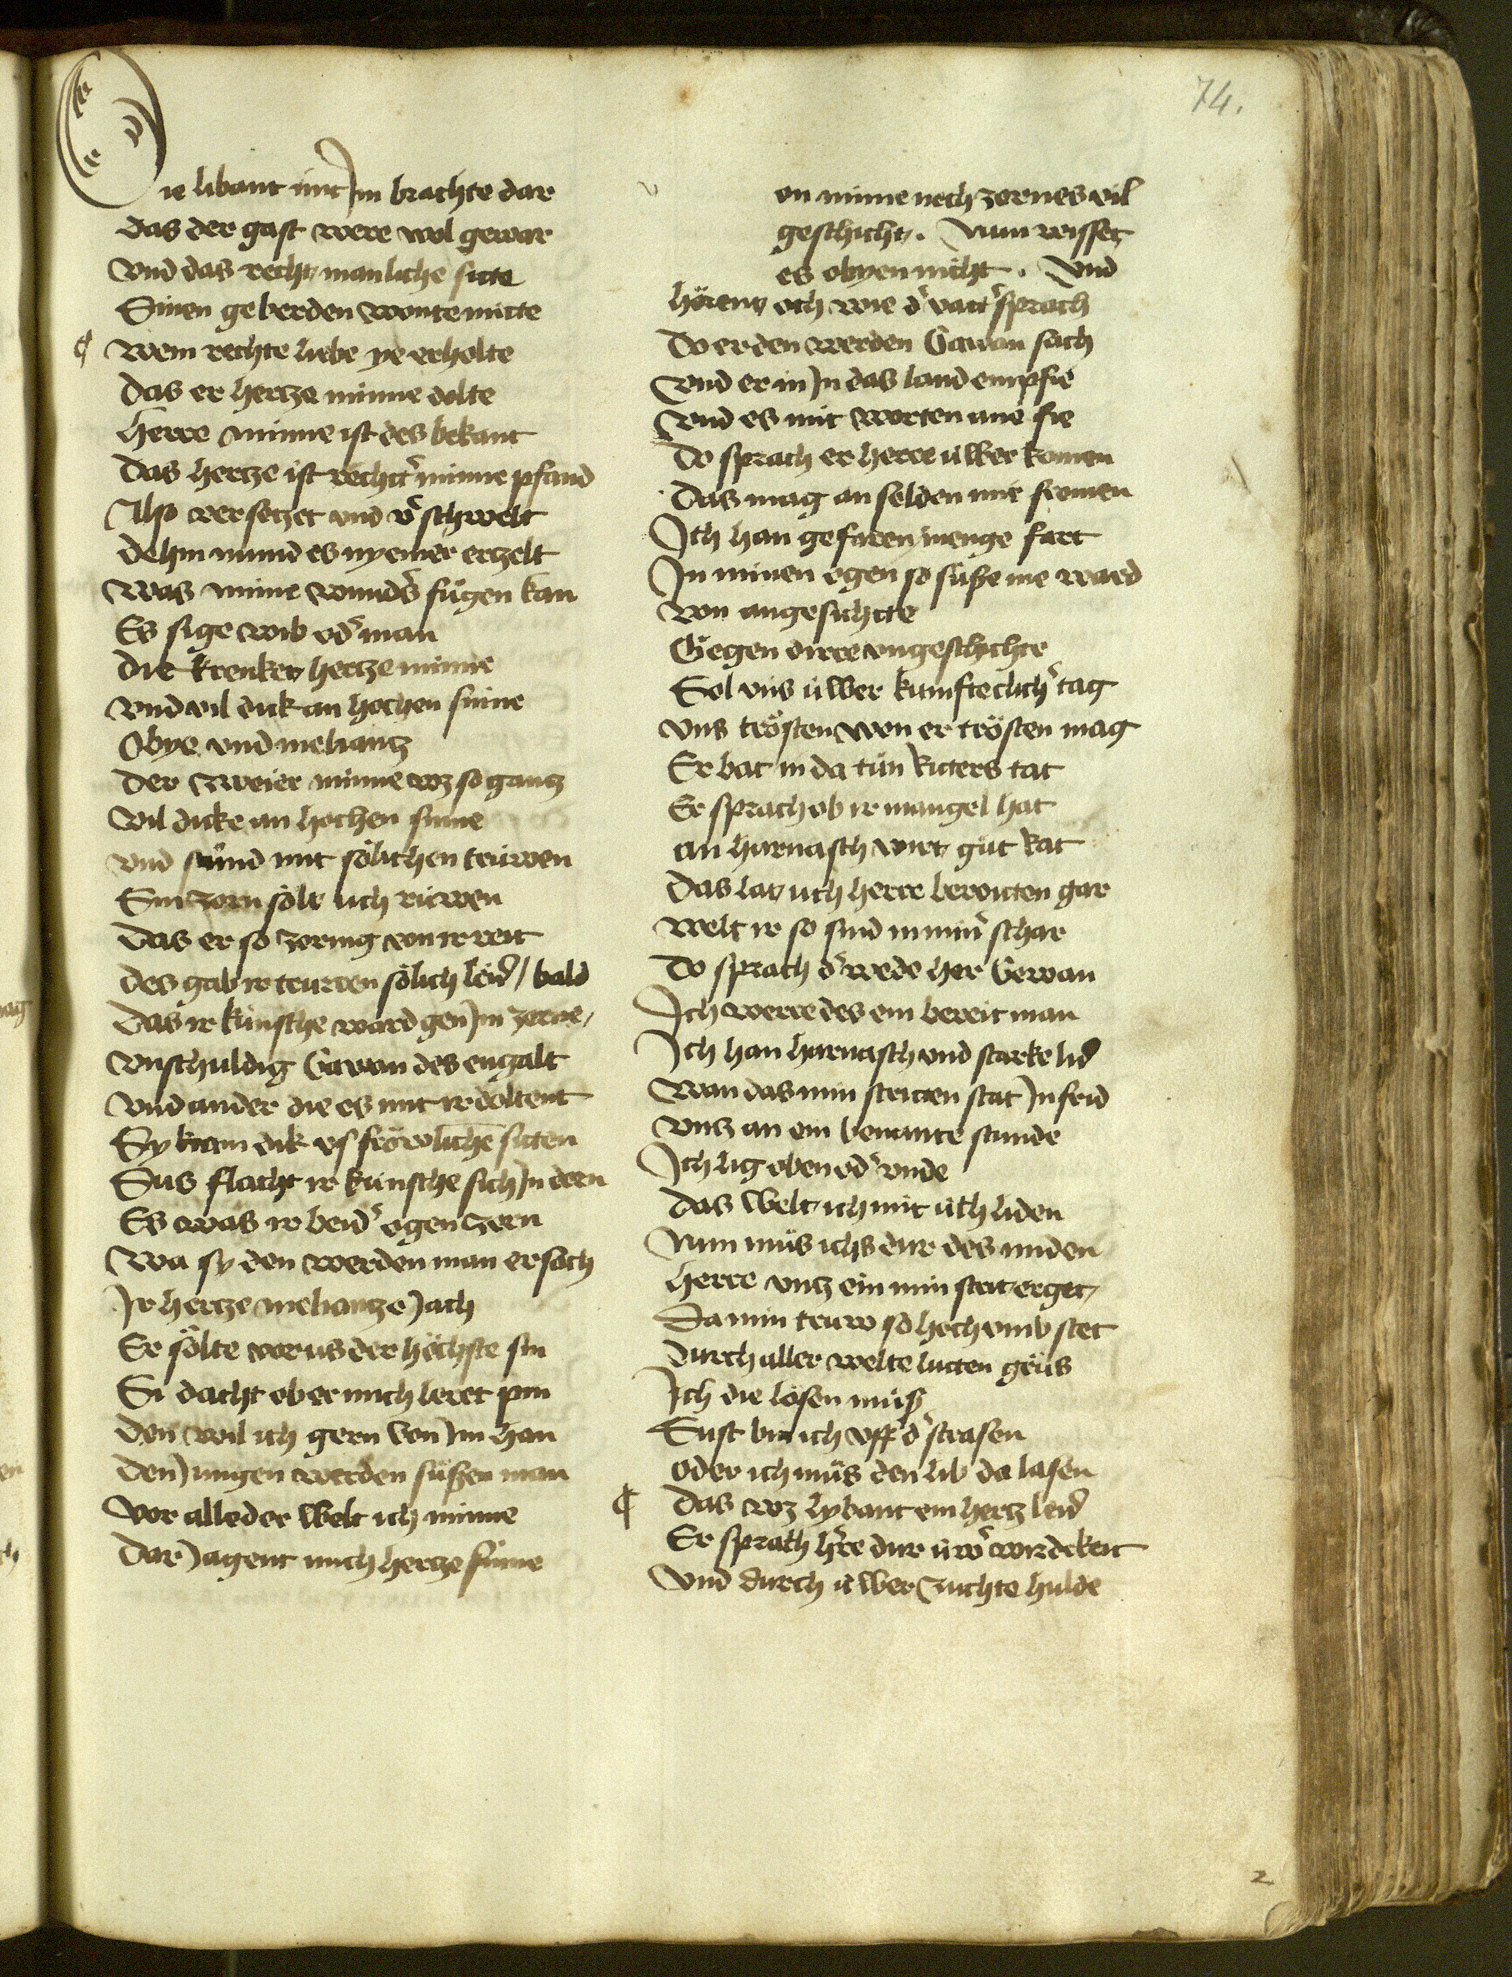 74.
Die libaut mit Im brachte dar
Das der gast were wol gewar
Vnd das recht manliche sitte
Sinen geberden wonte mitte
¶ Wem rechte liebe ye erholte
Das er hertze minne dolte
Herre minne ist des bekant
Das hertze ist rechtr̛ minne pfand
Also versetzet vnd v̛schwelt
Dehin mund es nyemer erzelt
Was minne wunds̛ fügen kan
Es sige wib od̛ man
Die krenket hertze minne
Vnd vil dik an hochen sinne
Obye vnd meliantz
Der zweier minne wz so gantz
Vil dicke an hochen sinne
vnd stünd mit sölichen trüwen
Sin zorn sölt üch rüwen
Das er so zornig von ir reit
Des gab ir trurren sölich leid / bald
Das ir künsche ward gen Im zorne
Vnschuldig Gawan des engalt
Vnd ander die es mit ir doltent
Sy kam dik vs fröwliche siten
Sus flacht ir künsche sich In den
Es was ir beid̛ ogen zorn
Wa sy den werden man ersach
Ir hertze meliantze Jach
Er sölte vor us der höchste sin
Si dacht ob er mich leret pin
Den wil ich gern von Im han
Den Jungen werden süßen man
Vor alle der welt ich minne
Dar Jagent mich hertze sinne
v on minne noch zornes vil
geschicht. Nun wisset
es obyen nicht. Vnd
hörent och wie d̛ vatt̛ sprach
Do er den werden Gawan sach
Vnd er in In das land empfie
Vnd es mit worten ane fie
Do sprach er herre üwer komen
Das mag an selden mir fromen
Ich han gefaren menge fart
In minen ogen so süße nie ward
Von angesichtte
Gegen dirre vngeschichte
Sol vns üwer kunfteclich̛ tag
Vns trösten won er trösten mag
Er bat in da tün Ritters tat
Er sprach ob ir mangel hat
an harnasch wirt güt Rat
Das lat üch herre bereitten gar
Welt ir so sind in min̛ schar
Do sprach d̛ wede her Gewan
Ich were des ein bereit man
Ich han harnasch vnd starke lid̛
Wan das min stritten stat In frid
Vntz an ein benante stunde
Ich lig oben od̛ vnde
Das welt ich mit üch liden
Nun müs ichs dur des miden
Herre vntz ein min strit erget
Da min trüw so hoch vmb stet
Durch aller welte lutten grüs
Ich die lösen müß
Sust bin ich vff d̛ strasen
Oder ich müs den lib da lasen
¶ Das wz lybaut ein hertz leid̛
Er sprach h̛re dur üw̛ wirdekeit
Vnd durch üwer zuchte hulde
2